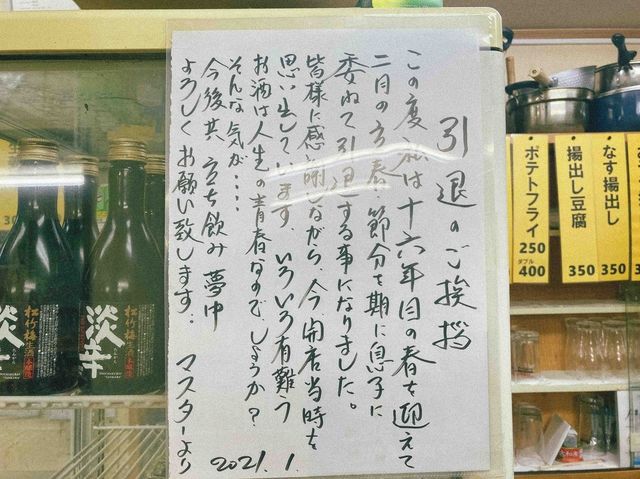 引退のご挨拶
この度私は十六年目の春を迎えて
二月の立春・節分を期に息子に
委ねて引退する事になりました。
皆様に感謝しながら、今、開店当時を
思い出しています。いろいろ有難う
お酒は人生の青春なのでしょうか?
そんな気が‥‥
今後共 立ち飲み 夢中
よろしくお願い致します。
マスターより
2021.1.
なす揚出し
350
揚出し豆腐
350
ポテトフライ
250
ダブル
400
松竹梅
淡辛
松竹梅
淡辛